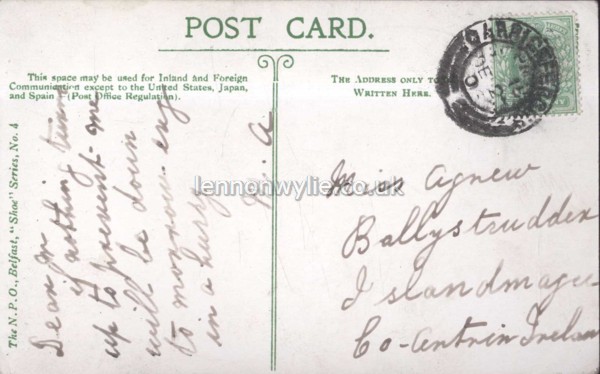 POST CARD.
This space may be used for Inland and Foreign
Communication except to the United States, Japan,
and Spain (Post Office Regulation).
The Address only to
Written Here.
The N.P.O., Belfast, "Shoe" Series, No. 4
Dear M
if nothing turns
up to prevent me
will be down
to morrow
in a hurry
A
lennonwylie.co.uk
Miss Agnew
Ballystrudder
Islandmagee
Co-Antrim Irelan